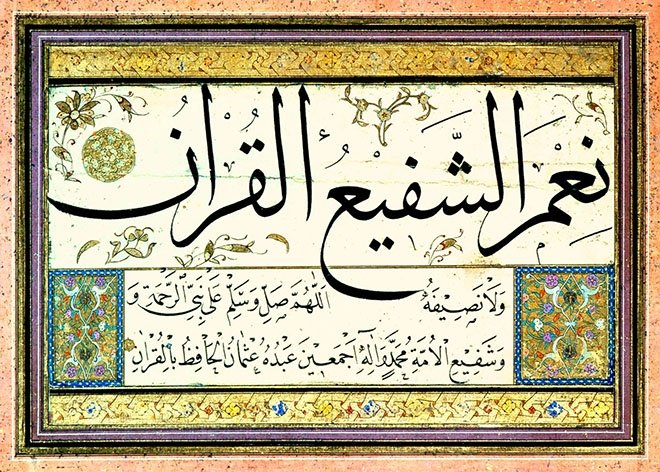 نعم الشفيع القرآن
ولا نصيفه اللهم صل وسلم على نبي الرحمة و
وشفيع الامة محمد وآله اجمعين عبده عثمان الحافظ بالقرآن